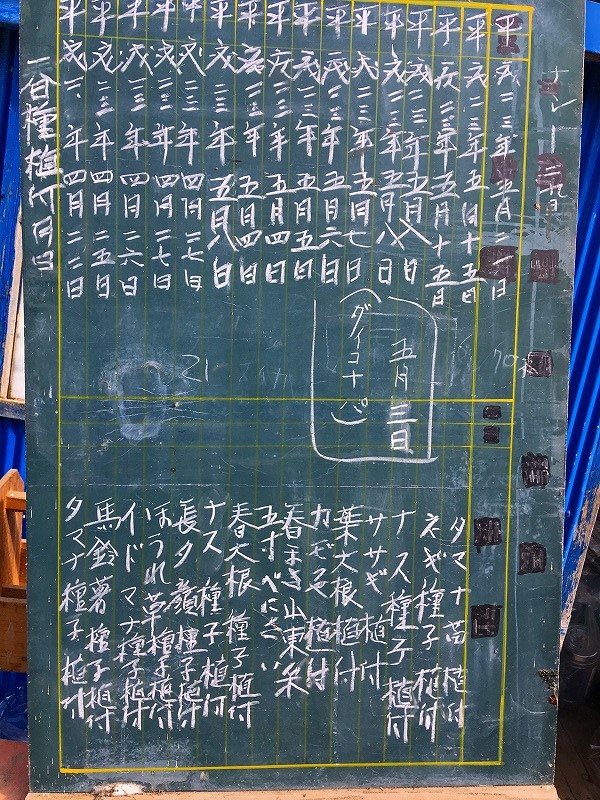 各種植付月日
平成二三年四月二二日
タマナ種子植付
平成二三年四月二五日
馬鈴薯種子植付
平成二三年四月二六日
イドマナ種子植付
平成二三年四月二七日
ほうれ草種子植付
平成二三年四月二七日
長夕顔種子植付
平成二三年五月八日
ナス種子植付
平成二三年五月四日
春大根種子植付
平成二三年五月四日
五寸べにさい
平成二三年五月五日
春まき山東菜
平成二三年五月六日
植付
平成二三年五月七日
葉大根植付
平成二三年五月八日
ササギ植付
平成二三年五月八日
ナス種子植付
平成二三年五月十五日
ネギ種子植付
平成二三年五月十五日
タマナ苗植付
平成二三年五月二一日
五月三日
(ダイコナッパ)
21
スイカ